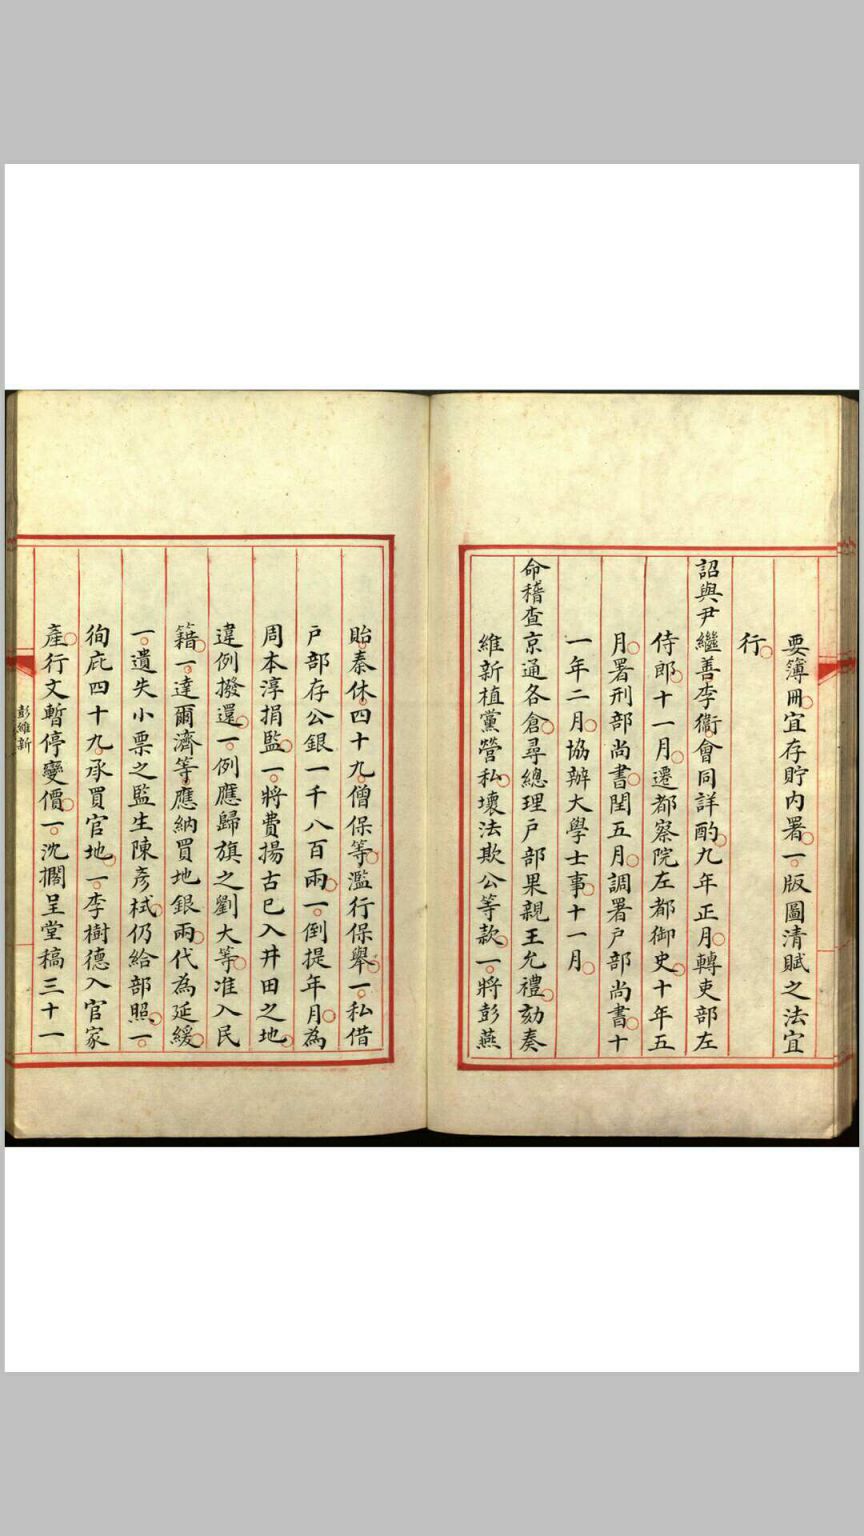 要簿冊宜存貯内署一版圖清賦之法宜
行
詔與尹繼善李衞會同詳酌九年正月轉吏部左
侍郎十一月遷都察院左都御史十年五
月署刑部尚書閏五月調署戶部尚書十
一年二月協辦大學士事十一月
命稽查京通各倉尋總理戶部果親王允禮劾奏
維新植黨營私壞法欺公等款一將彭燕
貽秦休四十九僧保等濫行保舉一私借
戶部存公銀一千八百兩一倒提年月為
周本淳捐監一將費揚古已入井田之地
違例撥還一例應歸旗之劉大等准入民
籍一達爾濟等應納買地銀兩代為延緩
一遺失小票之監生陳彥栻仍給部照一
徇庇四十九承買官地一李樹德入官家
產行文暫停變價一沈擱呈堂稿三十一
彭維新